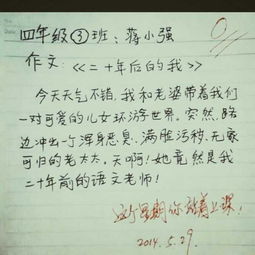 四年级③班：蒋小强
作文：《二十年后的我》
今天天气不错，我和老婆带着我们
一对可爱的儿女环游世界。突然，路
边冲出一个浑身恶臭、满脸污秽、无家
可归的老太太。天啊！她竟然是我
二十年前的语文老师！
这个星期你站着上课！
2014.5.29.